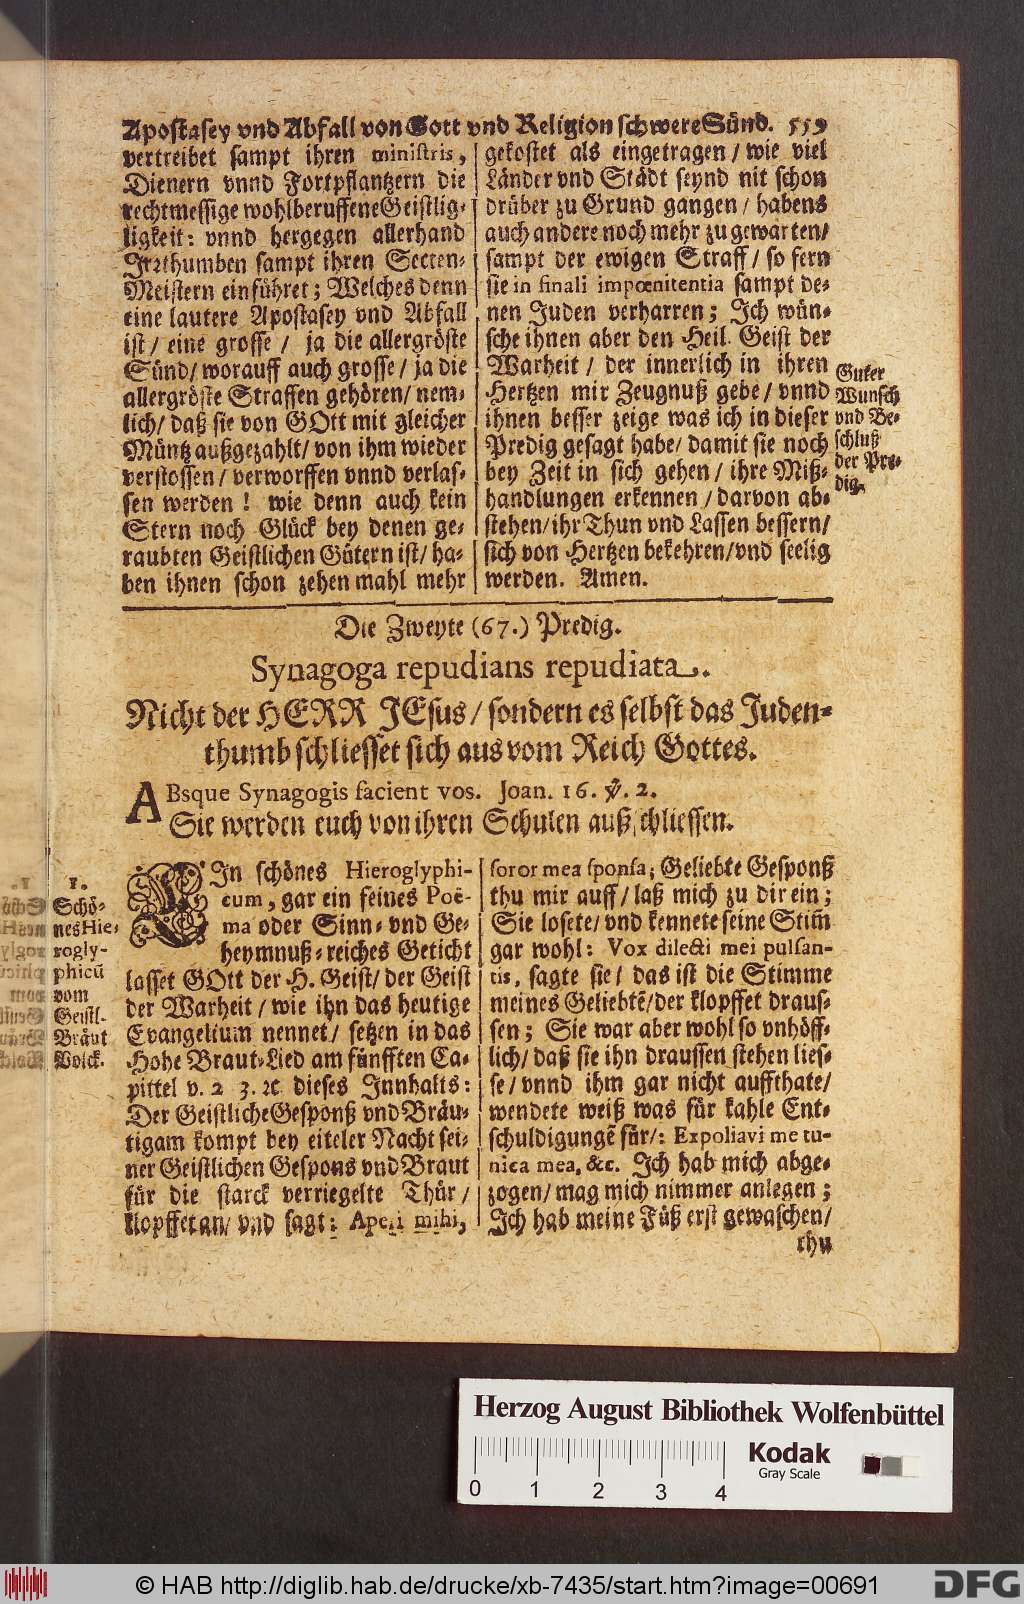 Apostasey vnd Abfall von Gott vnd Religion schwere Sünd. 559
vertreibet sampt ihren ministris,
Dienern vnnd Fortpflantzern die
rechtmessige wohlberuffene Geistlig-
ligkeit: vnnd hergegen allerhand
Irrthumben sampt ihren Secten-
Meistern einführet; Welches denn
eine lautere Apostasey vnd Abfall
ist/ eine grosse / ja die allergröste
Sünd/ worauff auch grosse/ ja die
allergröste Straffen gehören/ nem-
lich/ daß sie von GOtt mit gleicher
Müntz außgezahlt/ von ihm wieder
verstossen/ verworffen vnnd verlas-
sen werden! wie denn auch kein
Stern noch Glück bey denen ge-
raubten Geistlichen Gütern ist/ ha-
ben ihnen schon zehen mahl mehr
gekostet als eingetragen/ wie viel
Länder vnd Städt seynd nit schon
drüber zu Grund gangen/ habens
auch andere noch mehr zu gewarten/
sampt der ewigen Straff/ so fern
sie in finali impœnitentia sampt de-
nen Juden verharren; Ich wün-
sche ihnen aber den Heil. Geist der
Warheit/ der innerlich in ihren
Hertzen mir Zeugnuß gebe/ vnnd
ihnen besser zeige was ich in dieser
Predig gesagt habe/ damit sie noch
bey Zeit in sich gehen/ ihre Miß-
handlungen erkennen/ darvon ab-
stehen/ ihr Thun vnd Lassen bessern/
sich von Hertzen bekehren/ vnd seelig
werden. Amen.
Guter
Wunsch
vnd Be-
schluß
der Pre-
dig.
Die Zweyte (67.) Predig.
Synagoga repudians repudiata.
Nicht der HERR JEsus/ sondern es selbst das Juden-
thumb schliesset sich aus vom Reich Gottes.
ABsque Synagogis facient vos. Joan. 16. ℣. 2.
Sie werden euch von ihren Schulen außschliessen.
1.
Schö-
nes Hie-
rogly-
phicū
vom
Geistl.
Bräut
Volck.
EIn schönes Hieroglyphi-
cum, gar ein feines Poë-
ma oder Sinn- vnd Ge-
heymnuß-reiches Geticht
lasset GOtt der H. Geist/ der Geist
der Warheit/ wie ihn das heutige
Evangelium nennet/ setzen in das
Hohe Braut-Lied am fünfften Ca-
pittel v. 2 3. ꝛc. dieses Innhalts:
Der Geistliche Gesponß vnd Bräu-
tigam kompt bey eiteler Nacht sei-
ner Geistlichen Gespons vnd Braut
für die starck verriegelte Thür/
klopffet an/ vnd sagt: Aperi mihi,
soror mea sponsa; Geliebte Gesponß
thu mir auff/ laß mich zu dir ein;
Sie losete/ vnd kennete seine Stim̃
gar wohl: Vox dilecti mei pulsan-
tis, sagte sie/ das ist die Stimme
meines Geliebtē/ der klopffet draus-
sen; Sie war aber wohl so vnhöff-
lich/ daß sie ihn draussen stehen lies-
se/ vnnd ihm gar nicht auffthate/
wendete weiß was für kahle Ent-
schuldigungē für/: Expoliavi me tu-
nica mea, &c. Ich hab mich abge-
zogen/ mag mich nimmer anlegen;
Ich hab meine Füß erst gewaschen/
thu
Herzog August Bibliothek Wolfenbüttel
Kodak
Gray Scale
0 1 2 3 4
© HAB http://diglib.hab.de/drucke/xb-7435/start.htm?image=00691
DFG